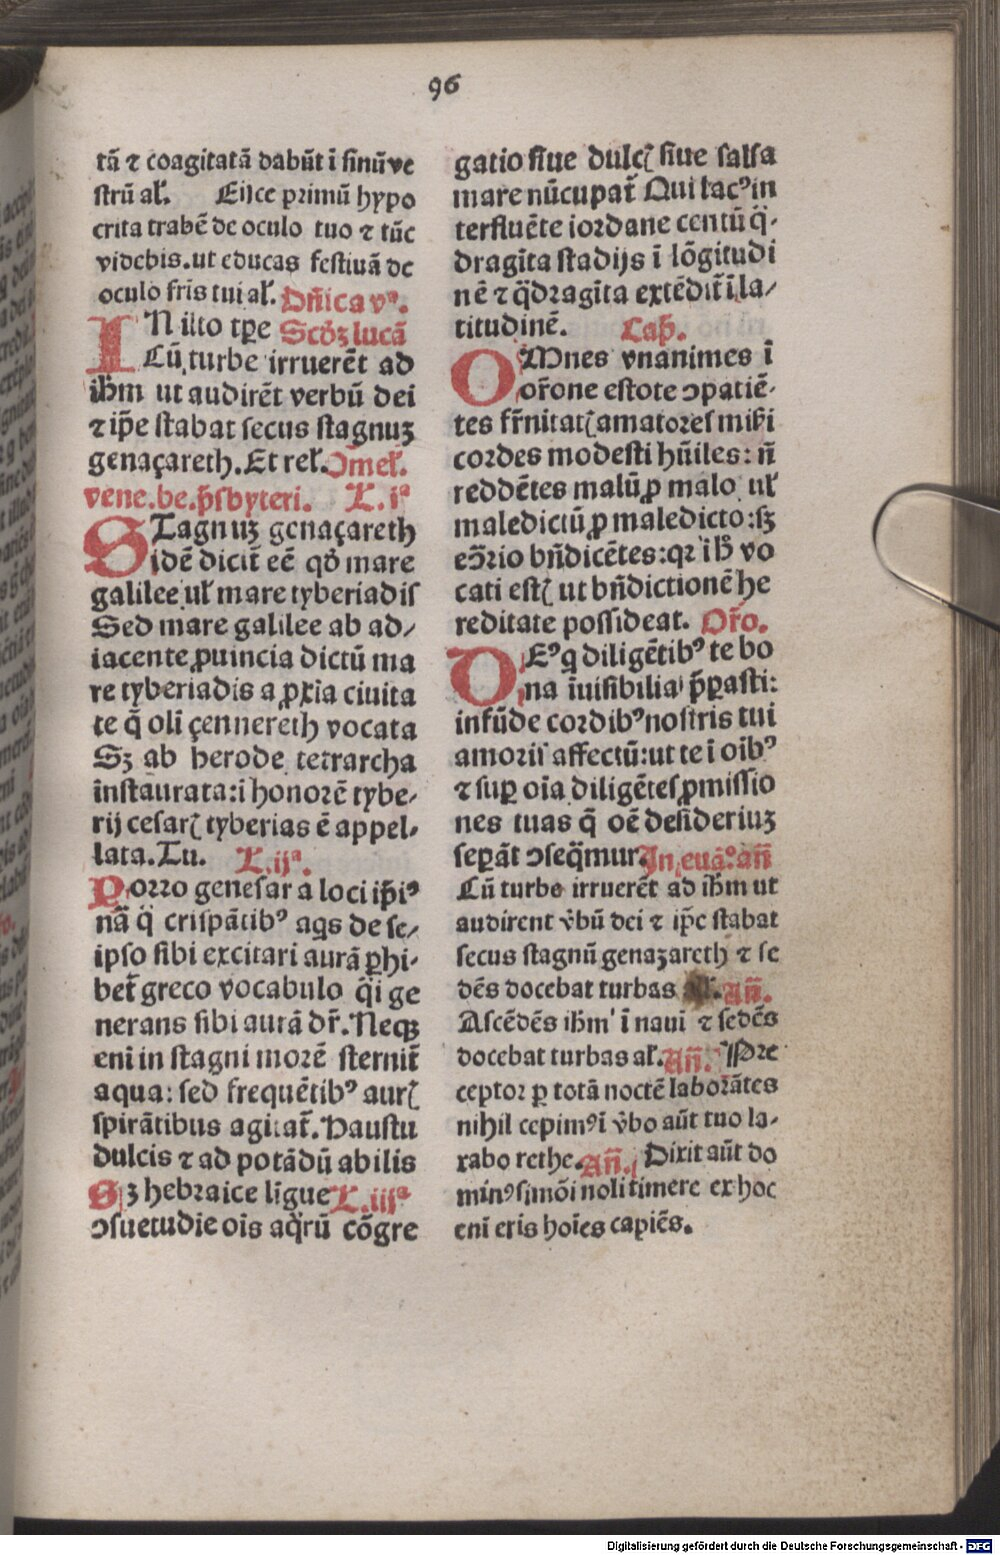 96
tã ⁊ coagitatã dabũt ĩ ſinũ ve
ſtrũ al̃. Eijce primũ hypo
crita trabẽ de oculo tuo ⁊ tũc
videbis.ut educas feſtiuã de
oculo fris̃ tui al̃. Dñica vª.
IN illo tp̃e Scd̃ꝫ lucã
Cũ turbe irruerẽt ad
ihm̃ ut audirẽt verbũ dei
⁊ ip̃e ſtabat ſecus ſtagnuꝫ
genaçareth. Et rel̃. Omel̃.
vene.be.p̃ſbyteri. L. iª
STagnuꝫ genaçareth
idẽ dicit̃ eẽ qd̃ mare
galilee ul̃ mare tyberiadiſ
Sed mare galilee ab ad⸗
iacente ꝓuincia dictũ ma
re tyberiadis a ꝓxĩa ciuita
te q̃ oli çennereth vocata
Sꝫ ab herode tetrarcha
inſtaurata:i honorẽ tybe⸗
rij ceſarꝭ tyberias ẽ appel⸗
lata. Tu. L. ijª.
Porro geneſar a loci ip̃iꝰ
nã q̃ criſpãtibꝰ aqs de ſe⸗
ipſo ſibi excitari aurã ꝑhi⸗
bet̃ greco vocabulo q̃i ge
nerans ſibi aurã dr̃. Neqꝫ
eni in ſtagni morẽ ſternit̃
aqua: ſed frequẽtibꝰ aurꝭ
ſpirãtibus agitat̃. Hauſtu
dulcis ⁊ ad potãdũ abilis
Sꝫ hebraice ligue L. iijª
ↄſuetudie oĩs aq̃rũ cõgre
gatio ſiue dulcꝭ ſiue ſalſa
mare nũcupat̃ Qui lacꝰ in
terfluẽte iordane centũ q̃⸗
dragĩta ſtadijs ĩ lõgitudi
nẽ ⁊ q̃dragĩta extẽdit̃ ĩ la⸗
titudinẽ. Cap̃.
OMnes vnanimes ĩ
or̃one eſtote ↄpatiẽ⸗
tes fr̃nitatꝭ amatoreſ miſi
cordes modeſti hũiles: ñ
reddẽtes malũ ꝓ malo ul̃
maledictũ ꝓ maledicto:ſꝫ
eↄ̃rio bñdicẽtes:qr ĩ h̃ vo
cati eſtꝭ ut bñdictionẽ he
reditate poſſideat. Or̃o.
DEꝰ q diligẽtibꝰ te bo
na ĩuiſibilia p̃paſti:
infũde cordibꝰ noſtris tui
amoriſ affectũ:ut te ĩ oĩbꝰ
⁊ ſuꝑ oĩa diligẽteſ ꝓmiſſio
nes tuas q̃ oẽ deſideriuꝫ
ſeꝑãt ↄſeq̃mur. In euã. añ
Cũ turbe irruerẽt ad ihm̃ ut
audirent v̓bũ dei ⁊ ip̃e ſtabat
ſecus ſtagnũ genazareth ⁊ ſe
dẽs docebat turbas al̃. Añ.
Aſcẽdẽs ihm̃ ĩ nauĩ ⁊ ſedẽs
docebat turbas al̃. Añ. Pre
ceptor ꝑ totã noctẽ laborãtes
nihil cepimꝰ ĩ v̓bo aũt tuo la⸗
xabo rethe. Añ. Dixit aũt do
minꝰ ſimõi noli timere ex hoc
eni eris hoĩes capiẽs.
Digitalisierung gefördert durch die Deutsche Forschungsgemeinschaft - DFG